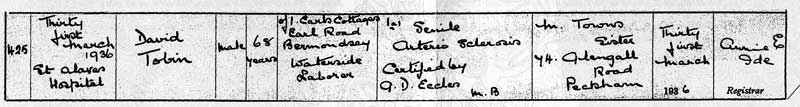 425
Thirty
first
March
1936
St Olaves
Hospital
David
Tobin
Male
68
years
of 1. Earls Cottages
Earl Road
Bermondsey
Waterside
Laborer
1(a)
Senile
Arterio Sclerosis
Certified by
A. D. Eccles
M. B
M. Towns
Sister
74. Glengall
Road
Peckham
Thirty
first
March
1936
Annie E
Ide
Registrar